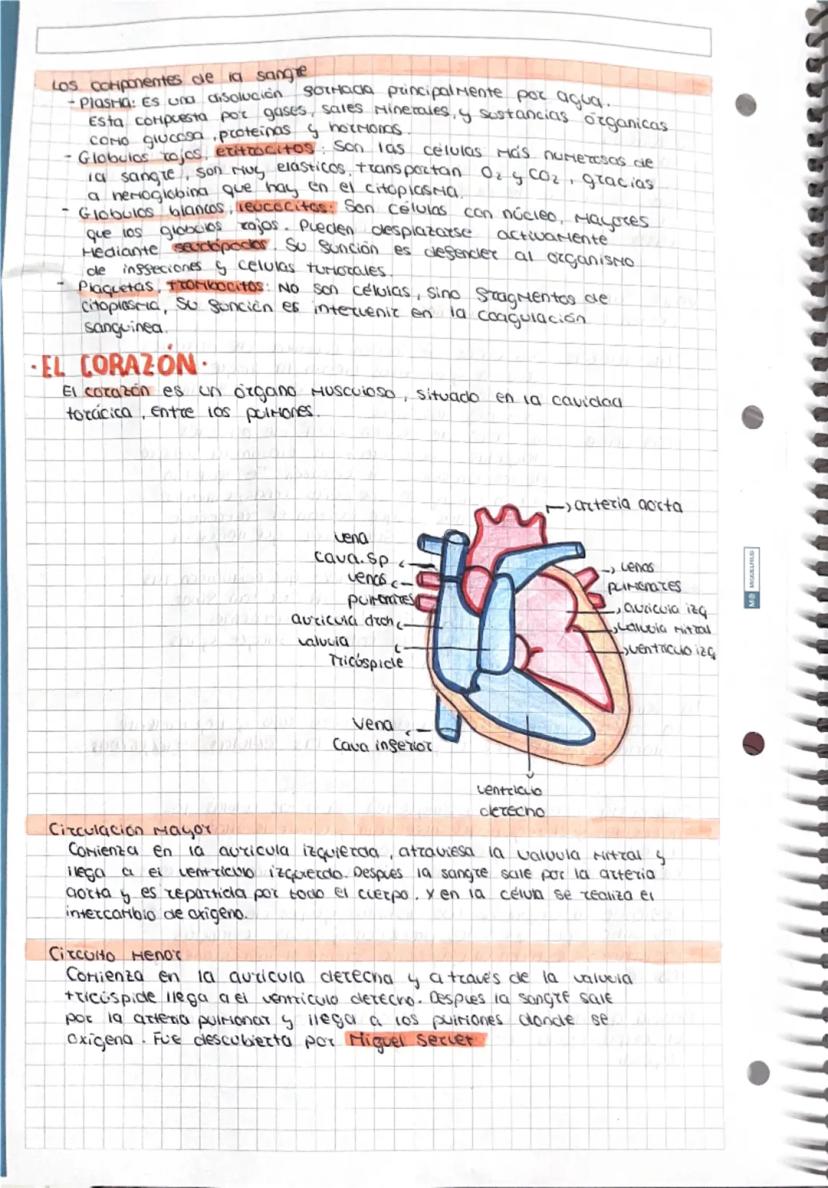 Los componentes de la sangre
- Plasma: Es una disolución formada principalmente por agua.
Esta compuesta por gases, sales minerales, y sustancias órganicas
como glucosa, proteinas y hormonas.
- Globulos rojos, eritrocitos: Son las células más numerosas de
la sangre, son muy elásticos, transportan O₂ y CO₂, gracias
a hemoglobina que hay en el citoplasma.
- Globulos blancos, leucocitos: Son células con núcleo, mayores
que los globulos rojos. Pueden desplazarse activamente
mediante seudópodos. Su función es defender al organismo
de infecciones y celulas tumorales.
- Plaquetas, trombocitos: No son células, sino fragmentos de
citoplasma, su función es intervenir en la coagulación
sanguínea.
· EL CORAZÓN ·
El corazón es un órgano musculoso, situado en la cavidad
torácica, entre los pulmones.
arteria aorta
vena
cava. sp
venas
pulmonares
venas
pulmonares
auricula drch
auricula izq
valvula
tricóspide
valvula mitral
ventriculo izq
vena
cava inferior
ventriculo
derecho
Circulación Mayor
Comienza en la auricula izquierda, atraviesa la valvula mitral y
llega a el ventriculo izquierdo. Despues la sangre sale por la arteria
aorta y es repartida por todo el cuerpo, y en la célula se realiza el
intercambio de oxigeno.
Circuito Menor
Comienza en la auricula derecha y a través de la valvula
tricúspide llega a el ventriculo derecho. Despues la sangre sale
por la arteria pulmonar y llega a los pulmones donde se
oxigena. Fue descubierta por Miguel Servet
MIQUELRIUS